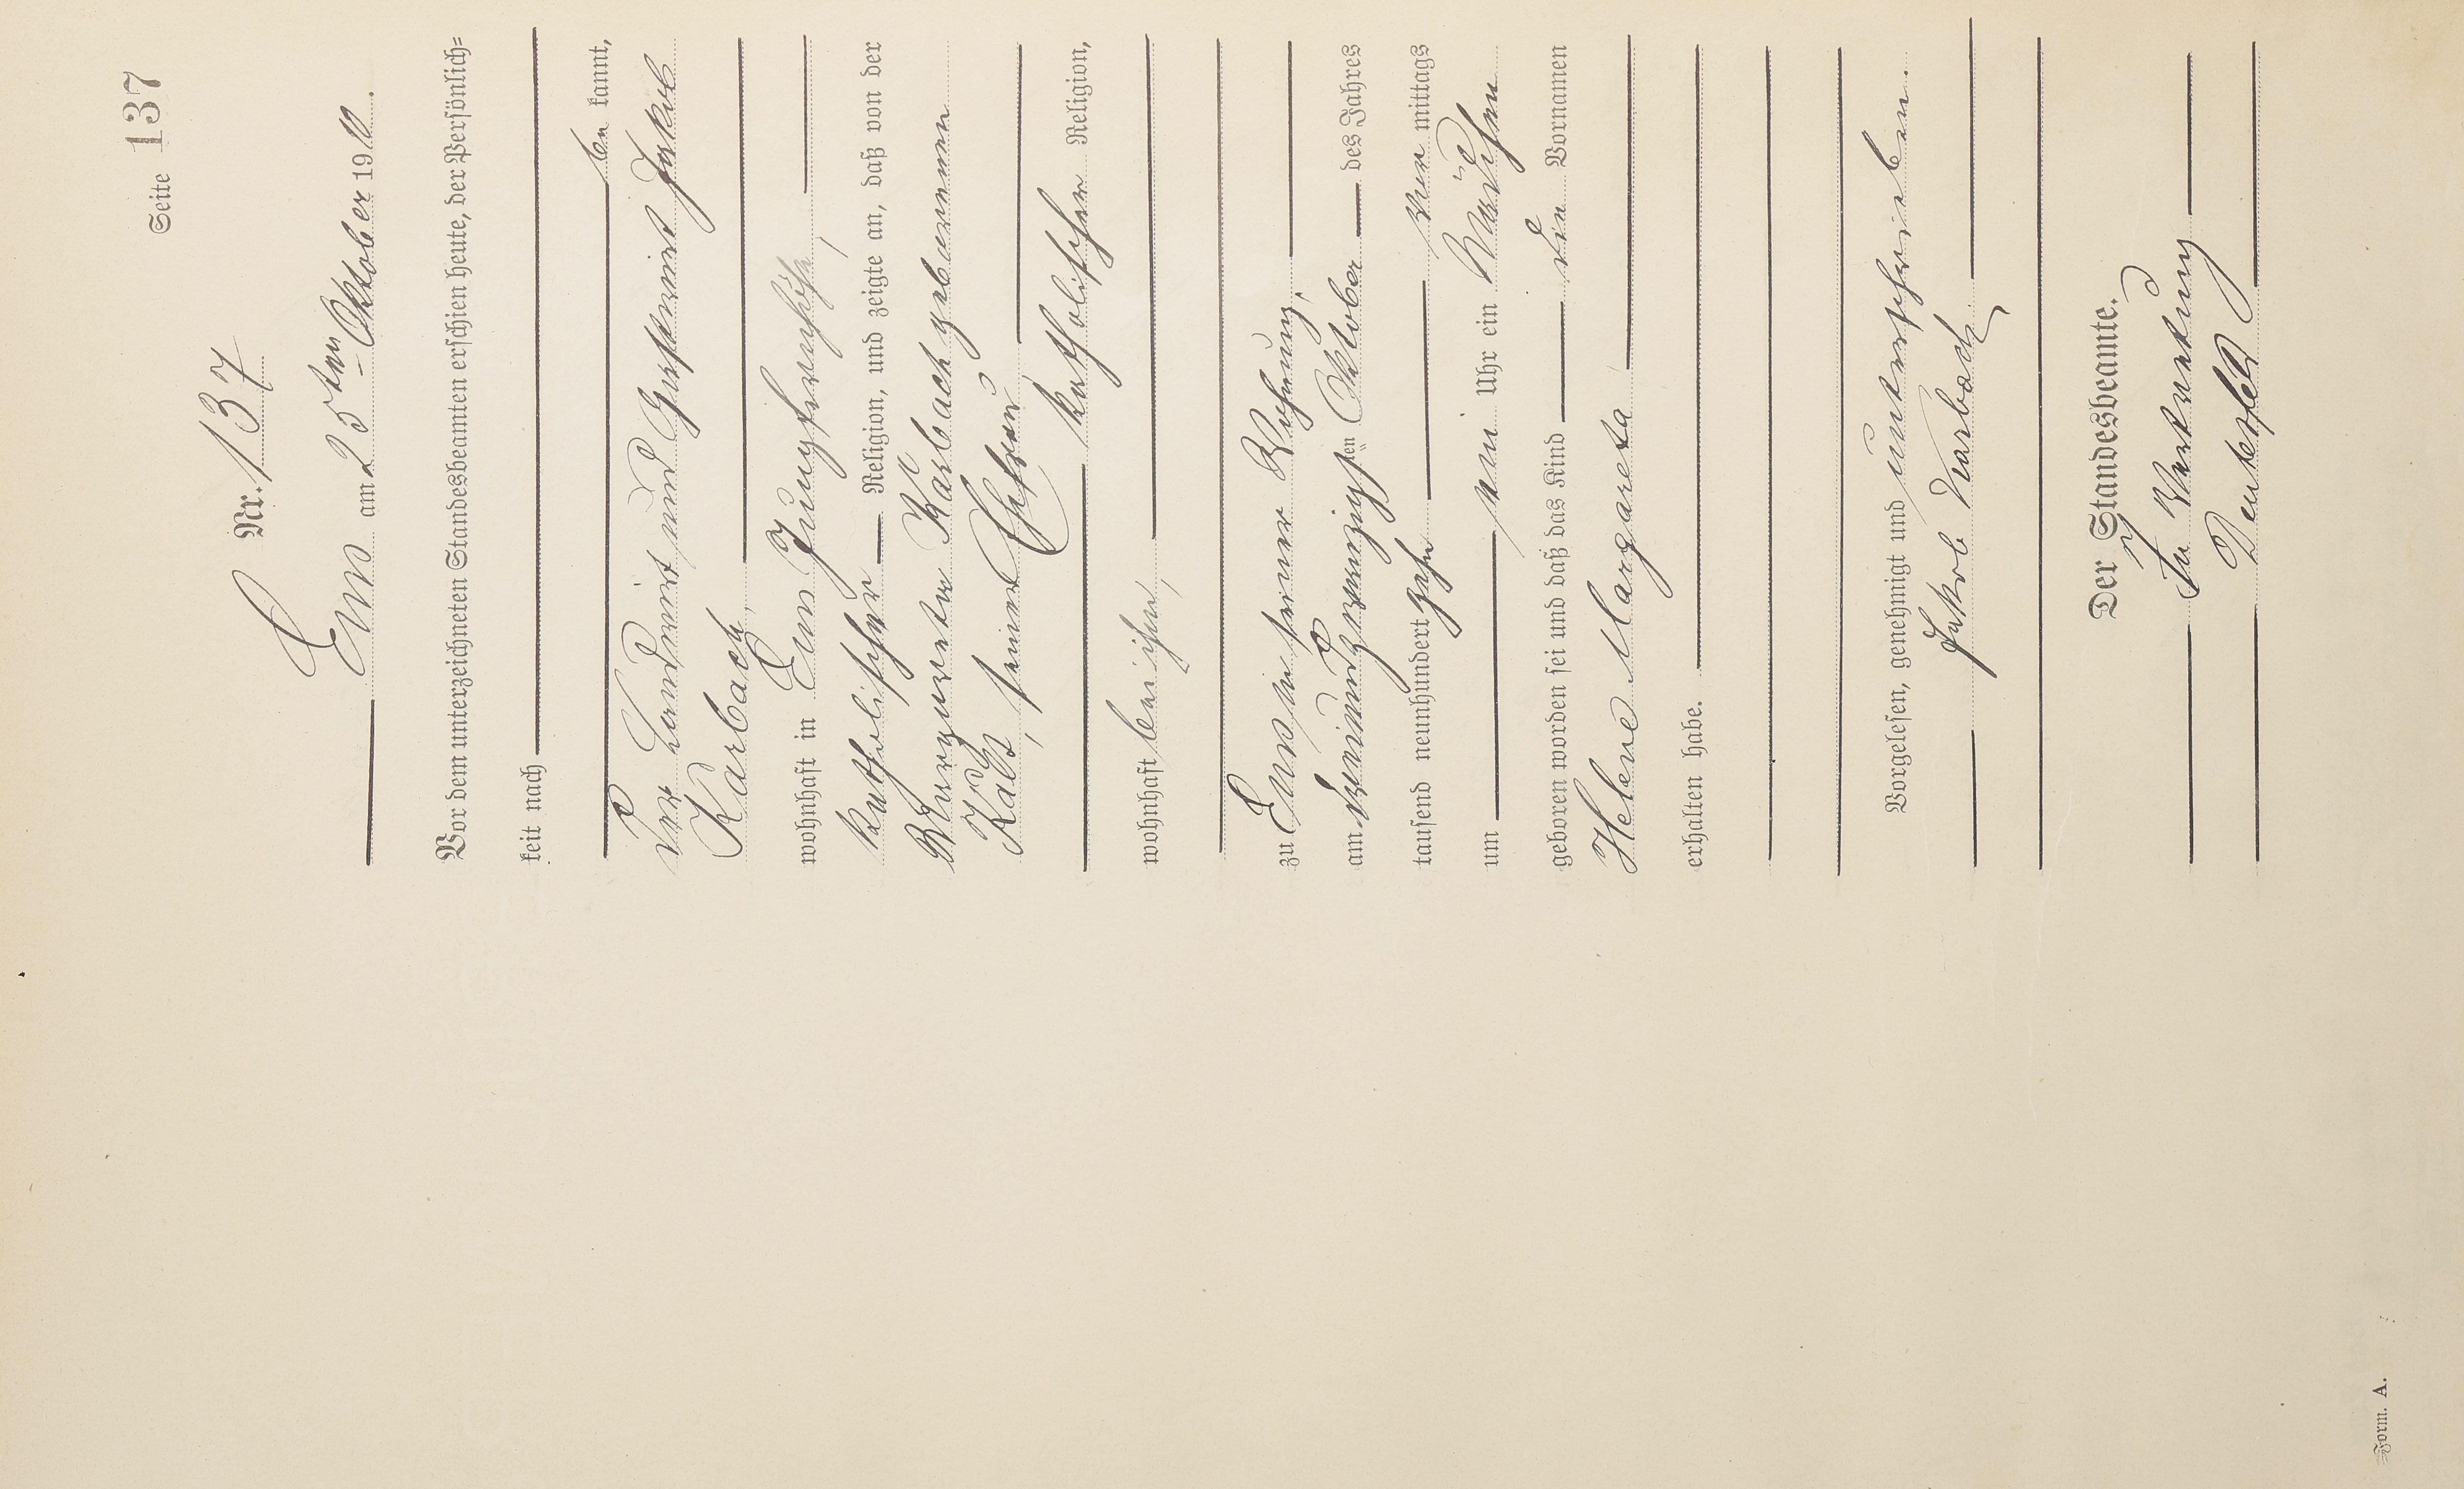 Seite 137
Nr. 137
Ems am 25ten Oktober 1910.
Vor dem unterzeichneten Standesbeamten erschien heute, der Persönlich=
keit nach
be kannt,
der Landwirt und Gastwirt Jakob
Karbach,
wohnhaft in Ems
katholischer Religion, und zeigte an, daß von der
Margareta Karbach geborenen
Kalt, seiner Ehefrau
katholischer Religion,
wohnhaft bei ihm,
zu Ems in seiner Wohnung,
am dreiundzwanzigsten Oktober des Jahres
tausend neunhundert zehn vor mittags
um Uhr ein Mädchen
geboren worden sei und daß das Kind die Vornamen
Helene Margareta
erhalten habe.
Vorgelesen, genehmigt und unterschrieben.
Jakob Karbach
Der Standesbeamte.
In Vertretung
Form. A.